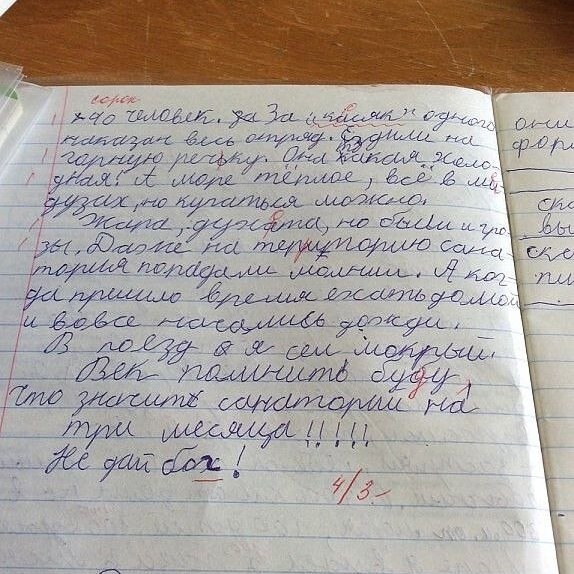 сорок
40 человек. За „касяк" одного
наказан весь отряд. Ездили на
горную речьку. Она такая холо-
дная! А море тёплое, всё в ме
дузах, но купаться можно.
Жара, духата, но были и гро-
зы. Даже на територию сана-
тория попадали молнии. А ког-
да пришло время ехать домой
и вовсе начались дожди.
В поезд я сел мокрый.
Век помнить буду,
что значить санаторий на
три месяца!!!!!
Не дай бох!
4/3-
они
форм
ска
вы
ске
пи